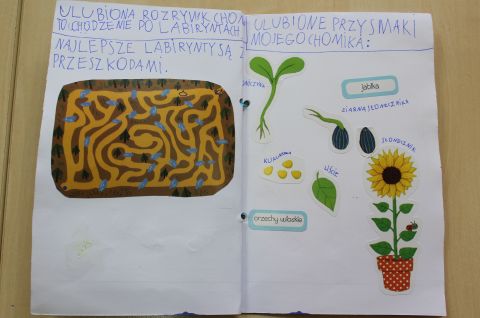 ULUBIONĄ ROZRYWK
TO CHODZENIE PO LABIRYNTACH
NAJLEPSZE LABIRYNTY SĄ Z
PRZESZKODAMI.
ULUBIONE PRZYSMAKI
MOJEGO CHOMIKA:
jabłka
ZIARNA SŁONECZNIKA
SŁONECZNIK
KUKURYDZA
LIŚĆ
orzechy włoskie